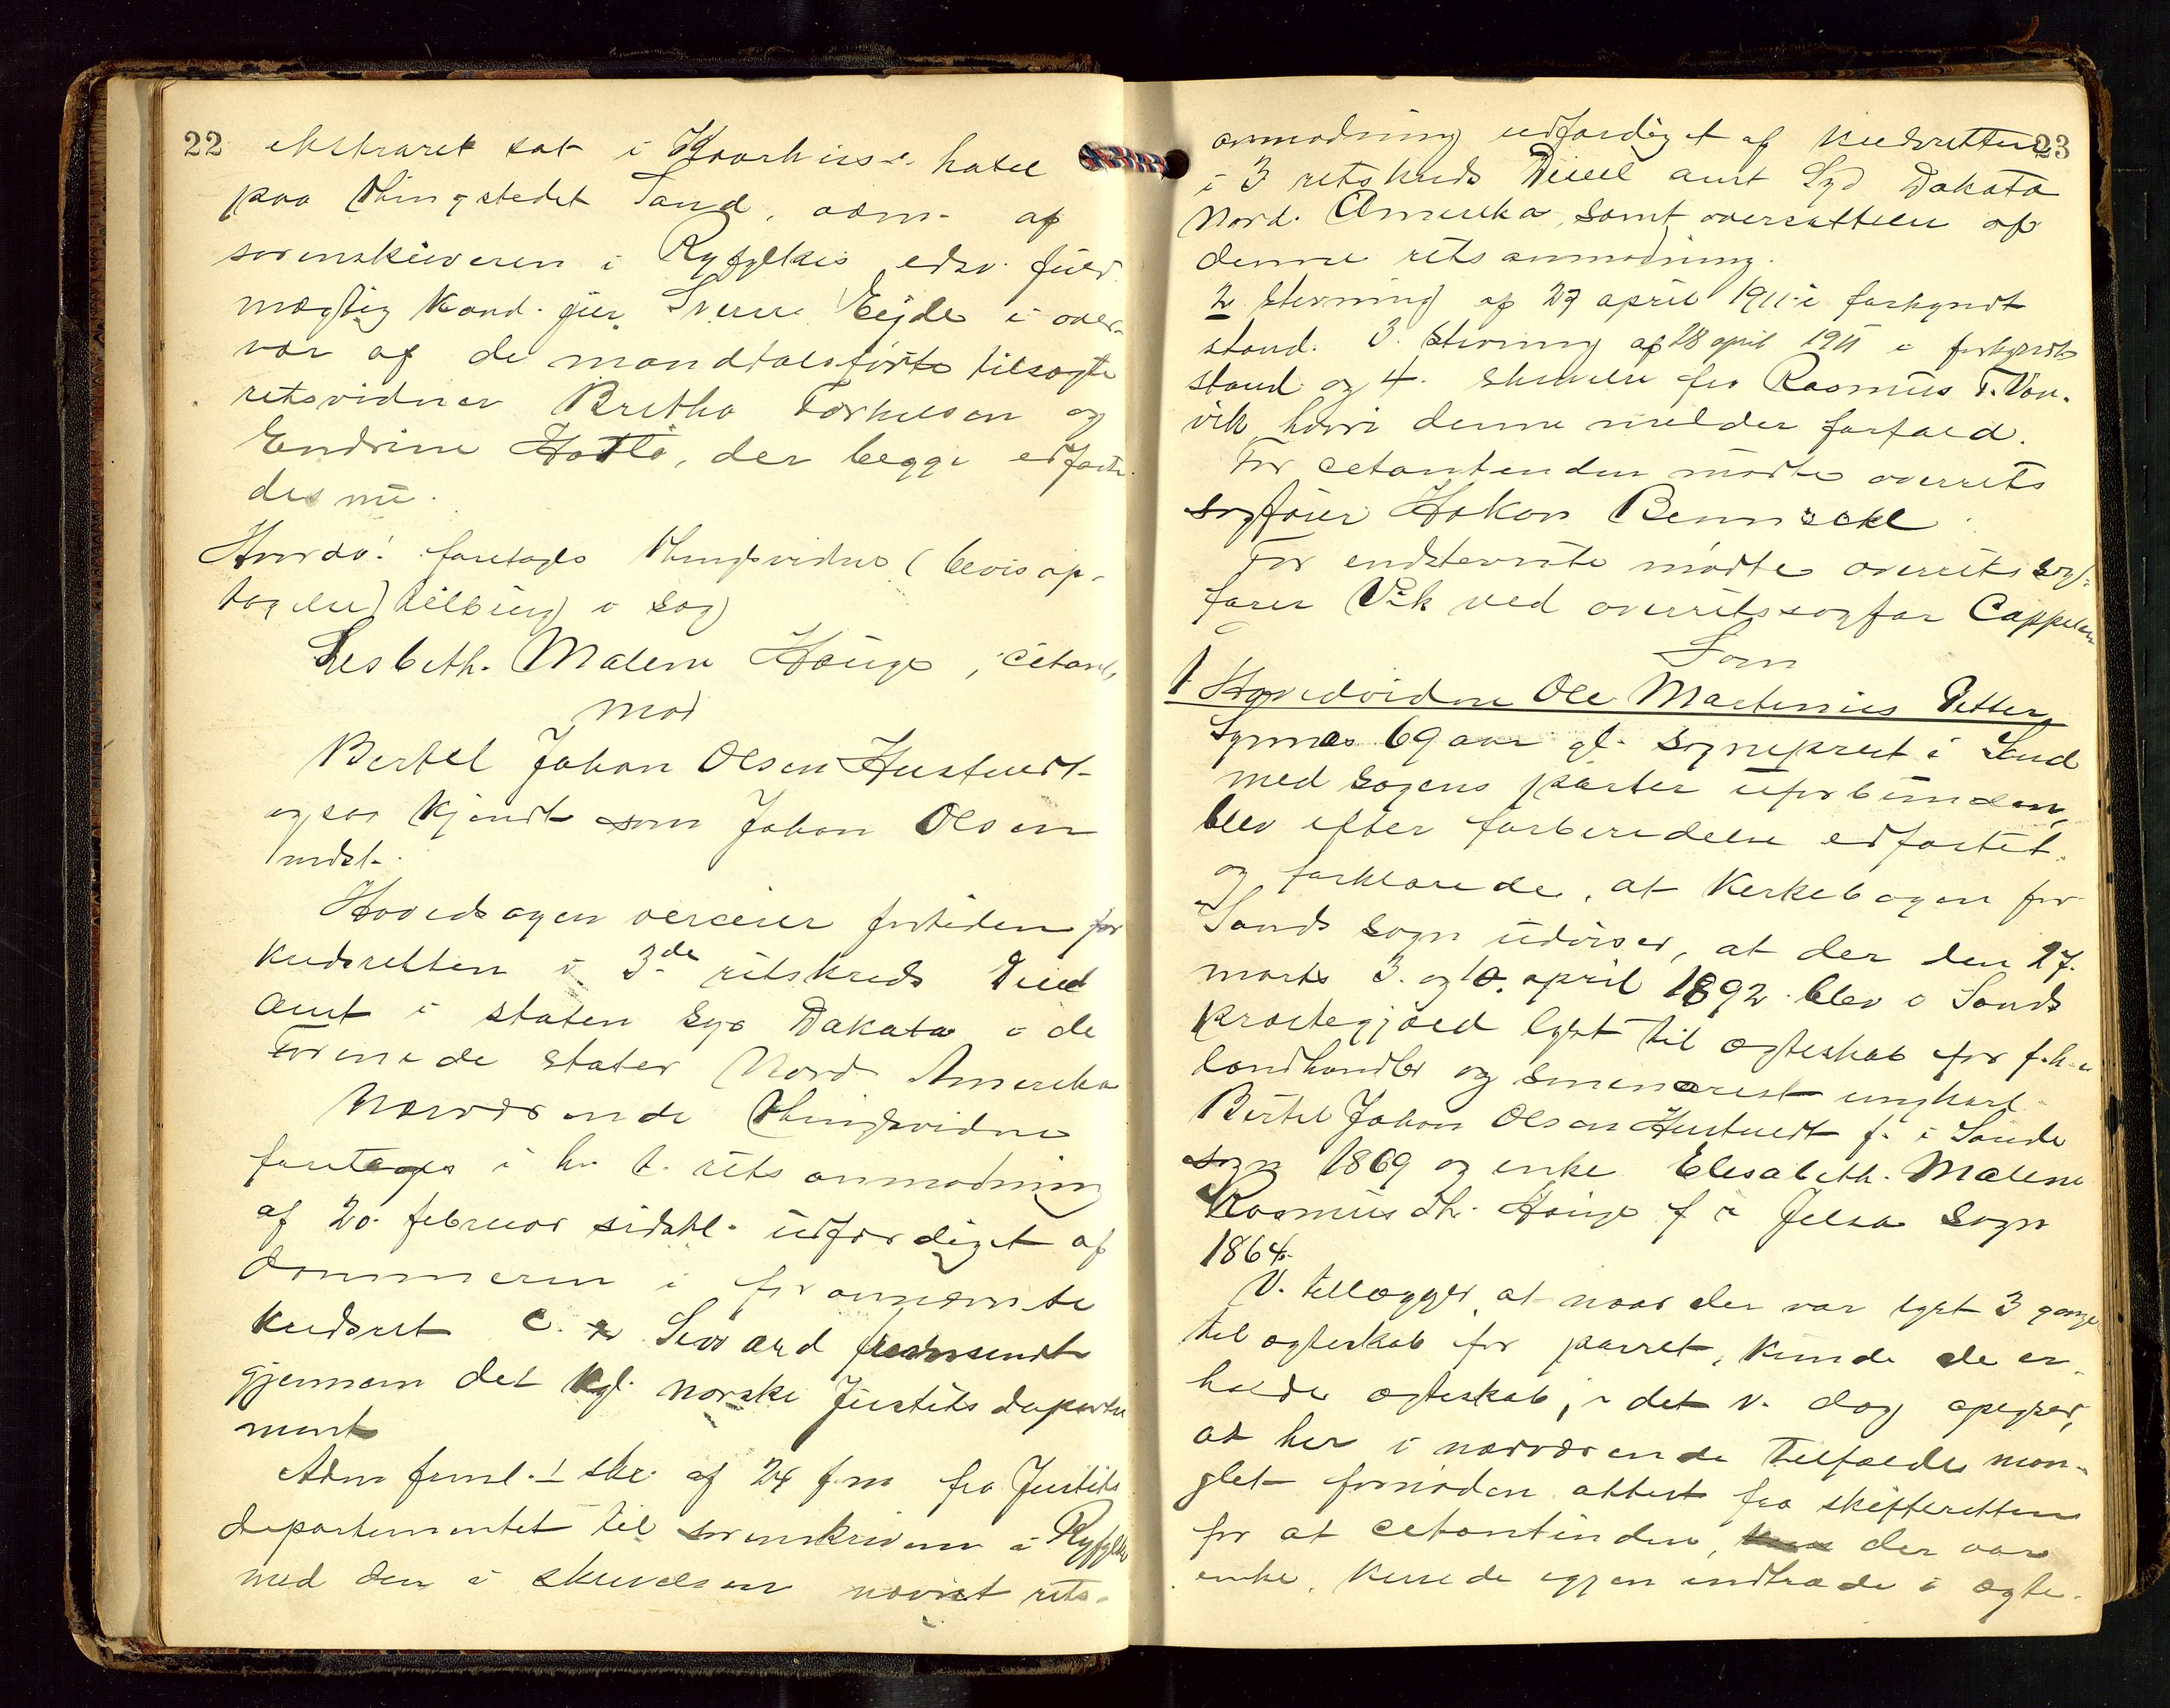 22 ekstraret sat i Kaarhuss hotel
paa thingstedet Sand, adm. af
sorenskriveren i Ryfylkes edsv. fuld
mægtig kand. jur. Sverre Eijde i over-
vær af de mandtalsførte tilsagte
retsvidner Bertha Torkelsen og
Endrine Hatlø, der begge edfæste-
des nu.
Hvorda: foretoges thingsvidne (bevisop-
tagelse) tilbrug i sag
Lisbeth Malene Hauge, citant,
mod
Bertel Johan Olsen Hustvedt
ogsaa kjendt som Johan Olsen
indst.
Hovedsagen verserer fortiden for
kredsretten i 3de retskreds Duel
amt i staten Syd Dakota i de
Forenede stater Nord Amerika
Nærværende thingsvidne
foretages i h. t. retsanmodning
af 20. februar sidstl. udfærdiget af
dommeren i forannævnte
kredsret C. x Seward fremsendt
gjennem det kgl. norske Justitsdeparte
ment
Adm. freml. 1 skr. af 24 f.m. fra Justits
departementet til sorenskriveren i Ryfylke
med den i skrivelsen nævnt rets-
anmodning udfærdiget af kredsretten 23
i 3 retskreds Duel amt Syd Dakota
Nord. Amerika, samt oversættelse af
denne retsanmodning.
2 stevning af 27 april 1911 i forkyndt
stand. 3. stevning af 28 april 1911 i forkyndt
stand og 4. skrivelse fra Rasmus T. Van-
vik hvori denne melder forfald.
For citantinden mødte overrets
sagfører Hakon Bennech
For indstevnte mødte overretssag-
fører Vik ved overretssagfør Cappelen
Som
1 Hovedvidne Ole Martinius Petter
Synnes 69 aar gl. sogneprest i Sand
med sagens parter uforbunden,
blev efter forberedelse edfæstet.
og forklarede, at kirkebogen for
Sands sogn udviser, at der den 27.
marts 3. og 10. april 1892 blev i Sands
præstegjæld lyst til ægteskab for f.h.v
landhandler og seminarist ungkarl
Bertel Johan Olsen Hustvedt f. i Sande
sogn 1869 og enke Elisabeth Malene
Rasmusdtr. Hauge f i Jelsa sogn
1864.
V. tillægger at naar der var lyst 3 gange
til ægteskab for parret, kunde de er-
holde ægteskab, i det v. dog opgjør,
at her i nærværende tilfælde man-
glet fornøden attest fra skifteretten
for at citantinden, der var
enke, kunde igjen indtræde i ægte-